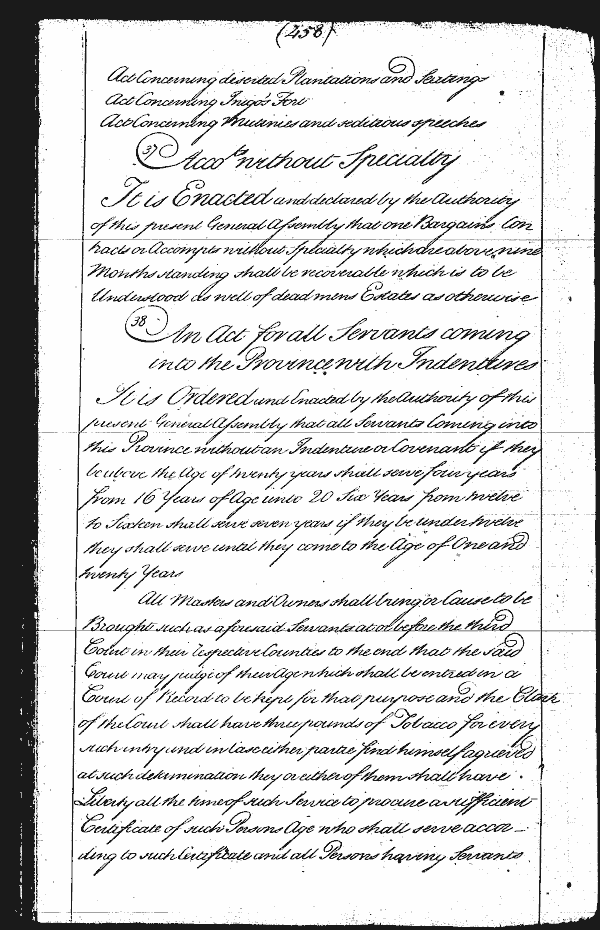 (458)
Act Concerning deserted Plantations and Seatings
Act Concerning Inigo's Fort
Act Concerning Mutinies and seditious speeches
37 Acco.ts without Specialty
It is Enacted and declared by the Authority
of this present General Assembly that one Bargains, Con
tracts or Accompts without Specialty which are above nine
Months standing shall be recoverable which is to be
Understood as well of dead mens Estates as otherwise
38 An Act for all Servants coming
into the Province with Indentures
It is Ordered and Enacted by the Authority of this
present General Assembly that all Servants Coming into
this Province without an Indenture or Covenant if they
be above the Age of twenty years shall serve four years
from 16 Years of Age unto 20 Six Years from twelve
to Sixteen shall serve seven years if they be under twelve
they shall serve until they come to the Age of One and
twenty Years
All Masters and Owners shall bring or Cause to be
Brought such as aforesaid Servants at or before the third
Court in their respective Counties to the end that the said
Court may judge of their Age which shall be entred in a
Court of Record to be kept for that purpose and the Clerk
of the Court shall have three pounds of Tobacco for every
such intry and in Case either partie find himself agrieved
at such determination they or either of them shall have
Liberty all the time of such Service to procure a sufficient
Certificate of such Persons Age who shall serve accor-
ding to such Certificate and all Persons having Servants